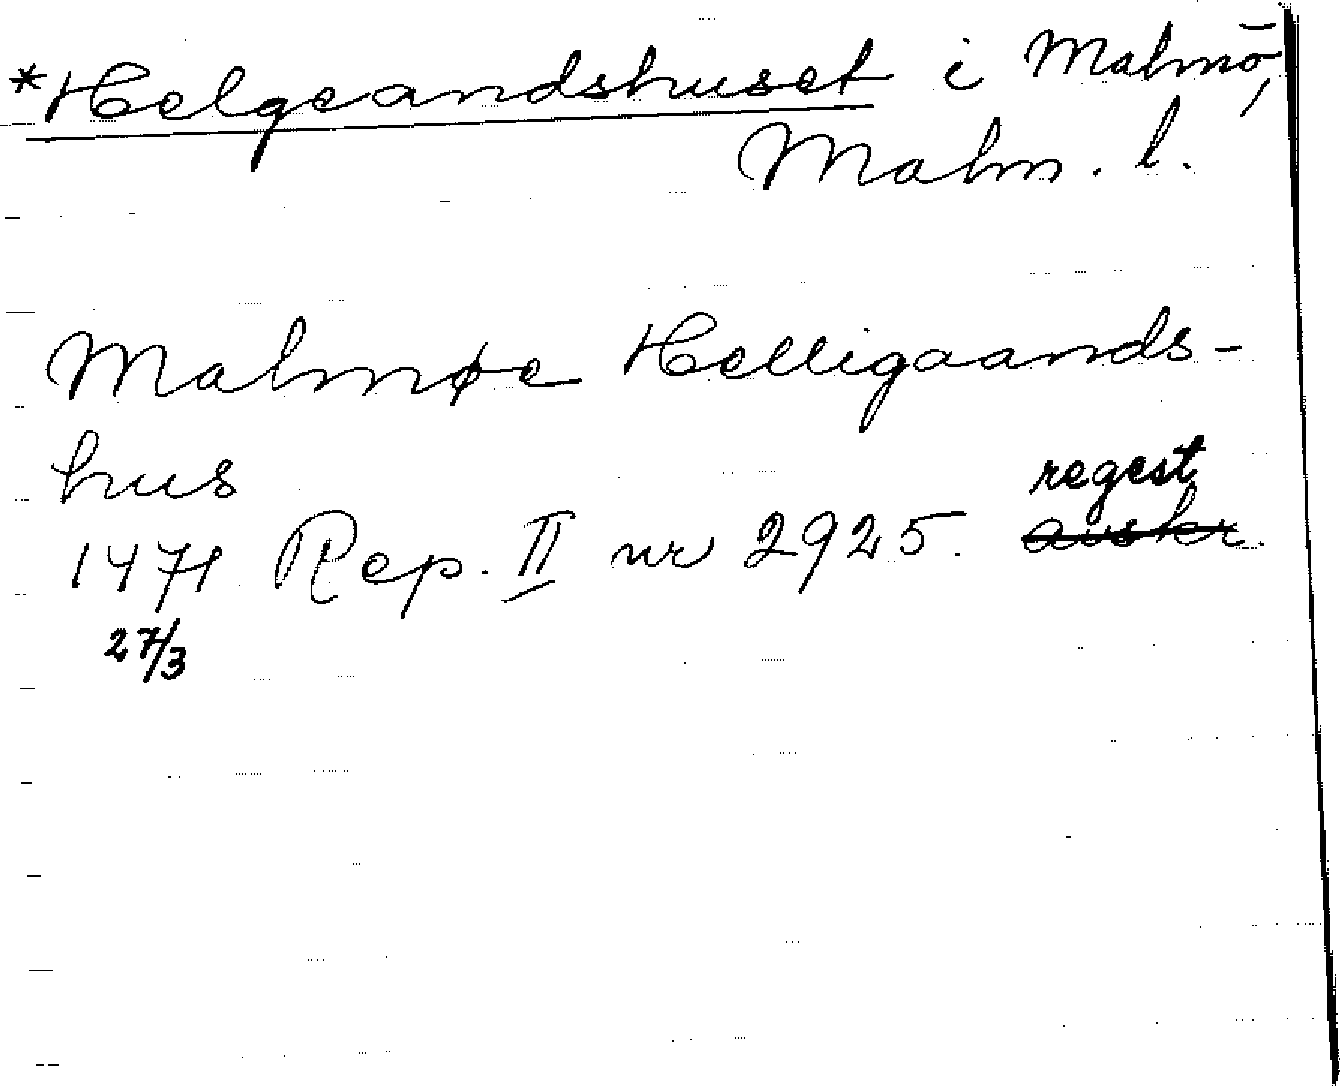 *Helgeandshuset i Malmö,
Malm. l.
Malmøe Helligaands-
hus
regest
1471 Rep. II nr 2925. avskr.
27/3